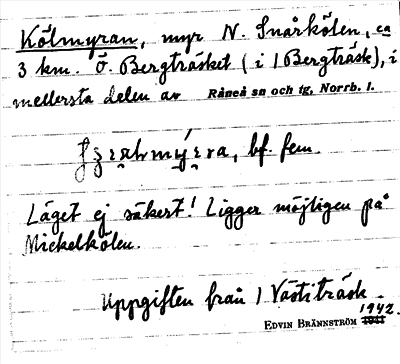 Kölmyran, myr N. Snårkölen, ca
3 km. Ö. Bergträsket (i 1 Bergträsk), i
mellersta delen av Råneå sn och tg, Norrb. l.
bf. fem.
Läget ej säkert! Ligger möjligen på
Mickelkölen.
Uppgiften från 1 Västiträsk.
EDVIN BRÄNNSTRÖM 1942.